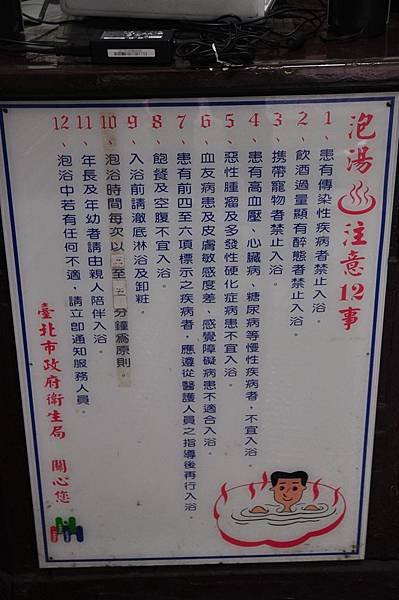 泡湯♨注意12事
1、患有傳染性疾病者禁止入浴。
2、飲酒過量顯有醉態者禁止入浴。
3、携帶寵物者禁止入浴。
4、患有高血壓、心臟病、糖尿病等慢性疾病者，不宜入浴。
5、惡性腫瘤及多發性硬化症病患不宜入浴。
6、血友病患及皮膚敏感度差、感覺障礙病患不適合入浴。
7、患有前四至六項標示之疾病者，應遵從醫護人員之指導後再行入浴。
8、飽餐及空腹不宜入浴。
9、入浴前請澈底淋浴及卸粧。
10、泡浴時間每次以三至五分鐘為原則。
11、年長及年幼者請由親人陪伴入浴。
12、泡浴中若有任何不適，請立卽通知服務人員。
臺北市政府衛生局 關心您